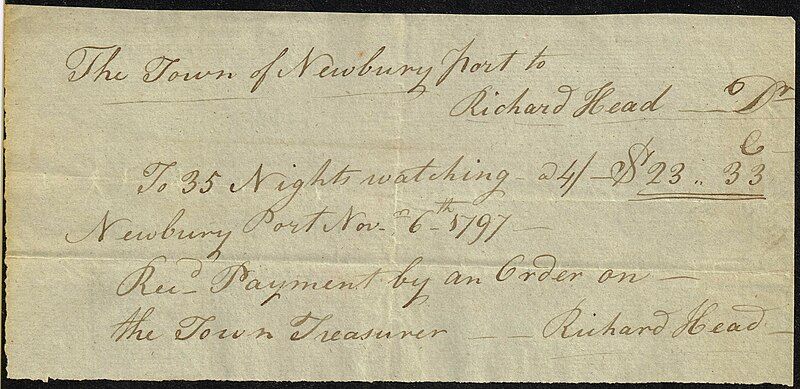 The Town of Newbury Port to
Richard Head — Dr
C
To 35 Nights watching - a 4/ - $23 .. 33
Newbury Port Nov. 6th 1797 —
Recd Payment by an Order on —
the Town Treasurer — — Richard Head —